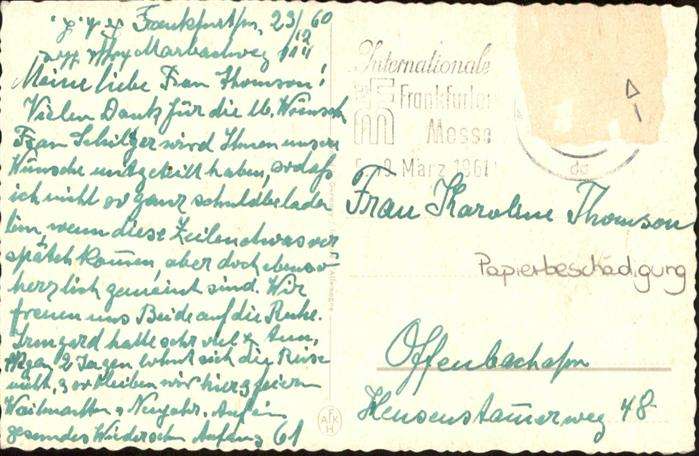 Frankfurt/m, 23/12 60
Marbachweg
Meine liebe Frau Thomson!
Vielen Dank für die lb. Wünsche
Frau Schilger wird Ihnen unsere
Wünsche mitgeteilt haben, sodaß
ich nicht so ganz schuldbelade
bin, wenn diese Zeilen etwas ver
spätet kommen, aber doch ebenso
herzlich gemeint sind. Wir
freuen uns Beide auf die Ruhe.
Irmgard hatte sehr viel z. tun,
2 Tagen lohnt sich die Reise
nicht, & so bleiben wir hier & feiern
Weihnachten & Neujahr. Auf ein
gesundes Wiedersehn Anfang 61
Internationale
Frankfurter
Messe
5.-9. März 1961
Frau Karoline Thomson
Papierbeschädigung
Offenbach a/m
Heusenstamerweg 48
AFKH